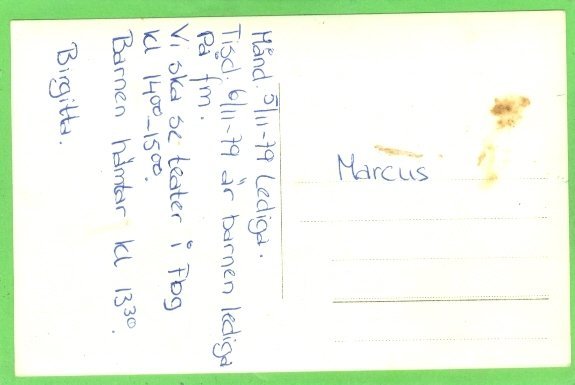 Månd. 5/11-79 Lediga.
Tisd. 6/11-79 är barnen lediga
på fm.
Vi ska se teater i Fbg
kl 14⁰⁰-15⁰⁰.
Barnen hämtar kl 13³⁰.
Birgitta.
Marcus